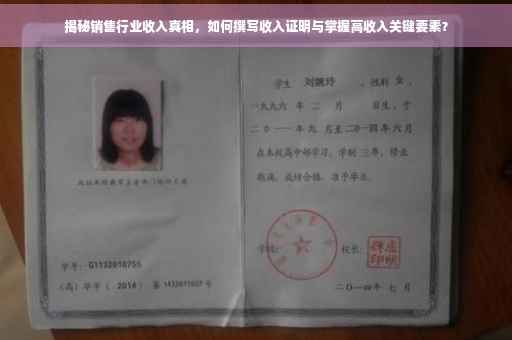 揭秘销售行业收入真相，如何撰写收入证明与掌握高收入关键要素？
学生 刘婉玲 ，性别 女 ，
一九九六 年 二 月 日生，于
二〇一一 年 九 月至 二〇一四 年 六 月
在本校高中部学习，学制 三 年，修业
期满，成绩合格，准予毕业。
学校： 校长：
学号：G1132010755
（高）毕字（ 2014 ）第 1432011027 号
二〇一四年 七 月